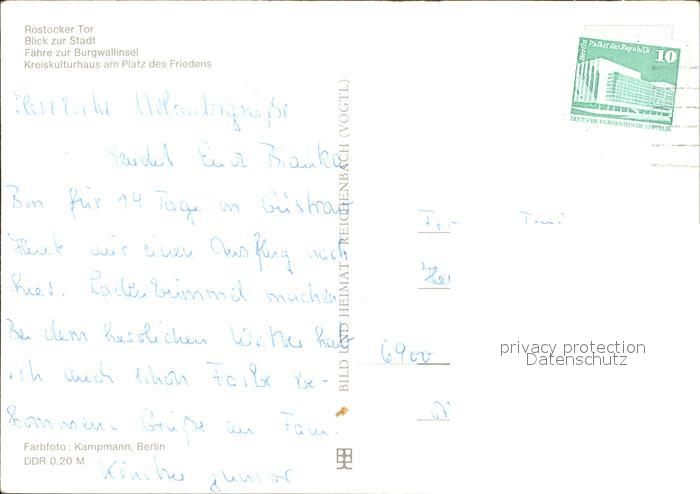 Rostocker Tor
Blick zur Stadt
Fähre zur Burgwallinsel
Kreiskulturhaus am Platz des Friedens
Herzliche Urlaubsgrüße
sendet Euch Bianka
Bin für 14 Tage in Güstrow
Heute mir einen Ausflug nach
hier. Ladenbummel machen.
Bei dem herrlichen Wetter hab
ich auch schon Farbe be-
kommen. Grüße an Fam.
junior
Farbfoto: Kampmann, Berlin
DDR 0,20 M
BILD UND HEIMAT REICHENBACH (VOGTL)
Berlin Palast der Republik
10
DEUTSCHE DEMOKRATISCHE REPUBLIK
6900
privacy protection
Datenschutz